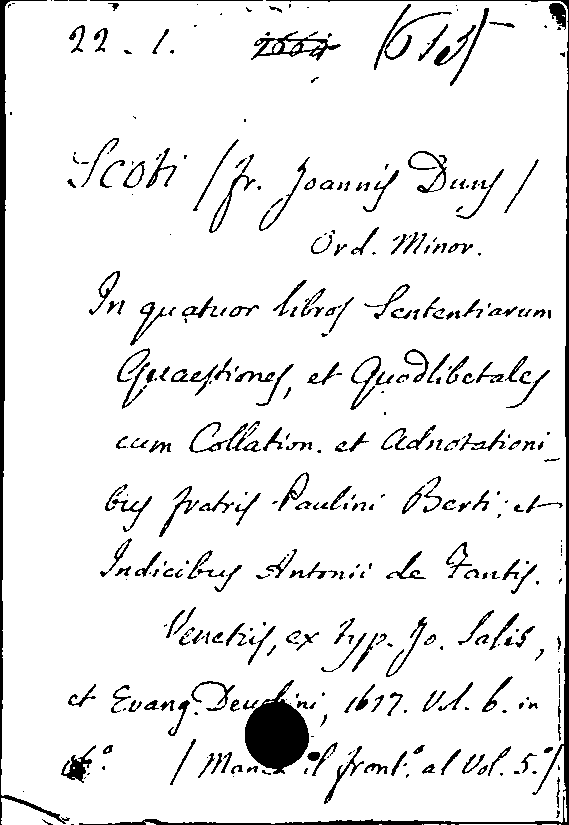 22. 1. (615)
Scoti / fr. Joannis Duns /
Ord. Minor.
In quatuor libros Sententiarum
Quaestiones, et Quodlibetales
cum Collation. et Adnotationi_
bus fratris Paulini Berti; et
Indicibus Antonii de Fantis.
Venetiis, ex typ. Jo. Salis,
et Evang. Deuchini, 1617. Vol. 6. in
/ Manca il front.º al Vol. 5.º /